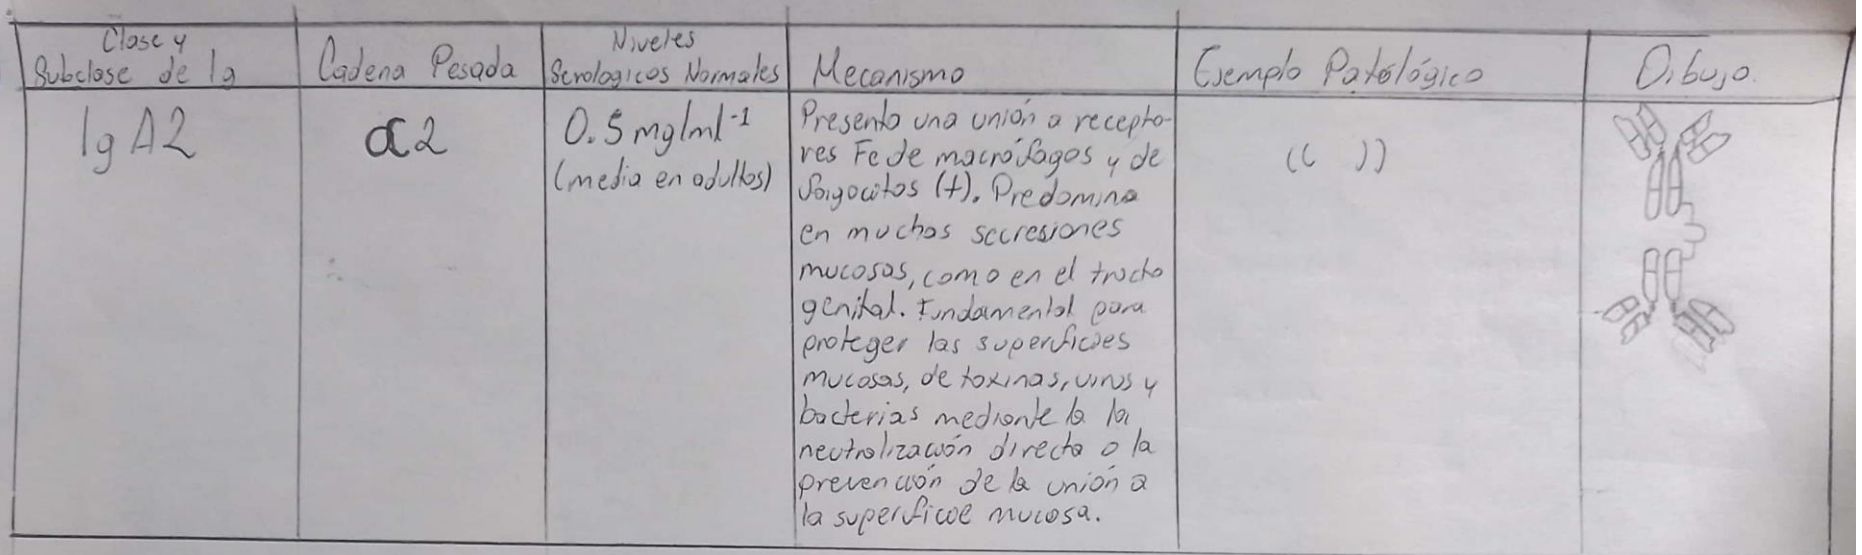 Clase y
Subclase de Ig
Cadena Pesada
Niveles
Serologicos Normales
Mecanismo
Ejemplo Patológico
Dibujo.
IgA2
α2
0.5 mg/ml⁻¹
(media en adultos)
Presenta una unión a recepto-
res Fc de macrófagos y de
fagocitos (+). Predomina
en muchas secresiones
mucosas, como en el tracto
genital. Fundamental para
proteger las superficies
mucosas, de toxinas, virus y
bacterias mediante la la
neutralización directa o la
prevención de la unión a
la superficie mucosa.
(( ))